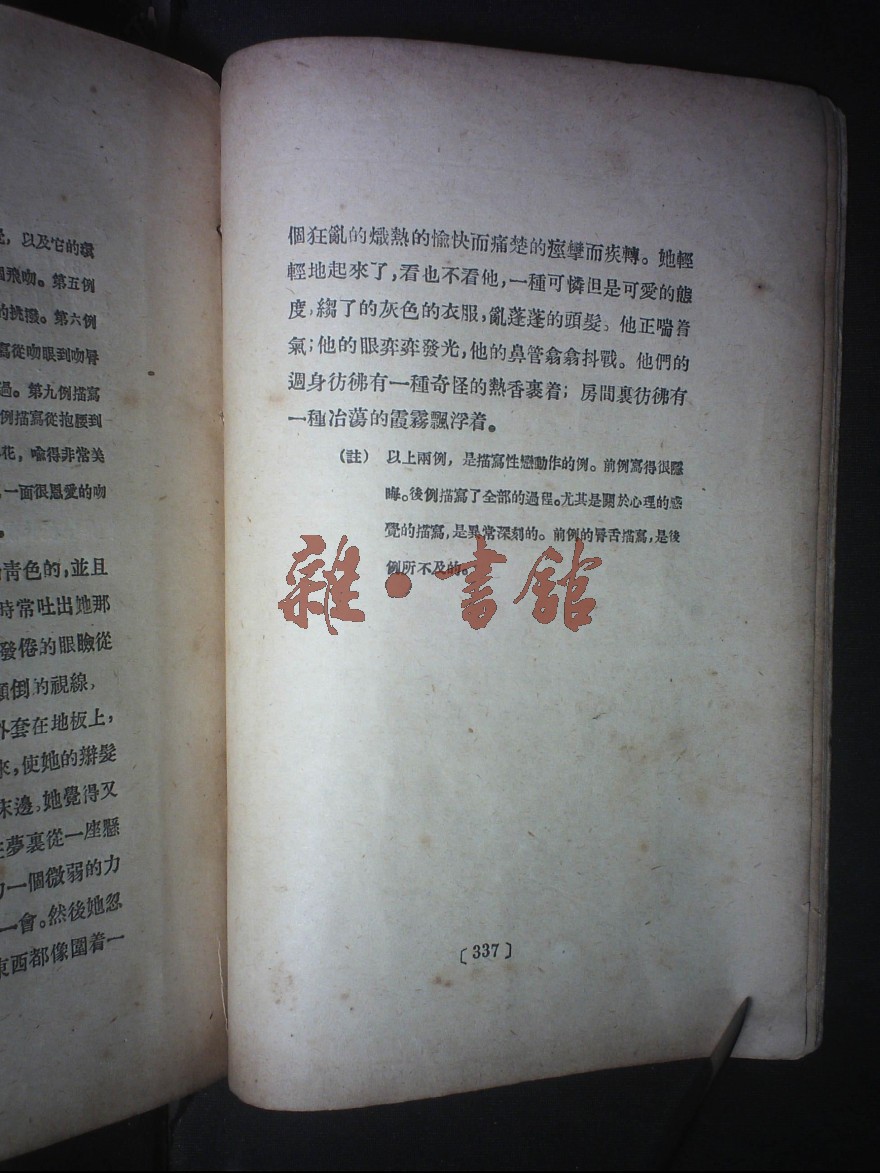 以及它的
飛吻。第五例
的挑撥。第六例
寫從吻眼到吻脣
過。第九例描寫
例描寫從抱腰到
花，喻得非常美
，一面很恩愛的吻
。
青色的，並且
時常吐出她那
發倦的眼瞼從
顛倒的視線，
外套在地板上，
來，使她的辮髮
床邊。她覺得又
夢裏從一座懸
一個微弱的力
一會。然後她忽
東西都像圍着一
個狂亂的熾熱的愉快而痛楚的痙攣而疾轉。她輕
輕地起來了，看也不看他，一種可憐但是可愛的態
度，縐了的灰色的衣服，亂蓬蓬的頭髮。他正喘着
氣；他的眼弈弈發光，他的鼻管翕翕抖戰。他們的
週身彷彿有一種奇怪的熱香裹着；房間裏彷彿有
一種冶蕩的霞霧飄浮着。
（註） 以上兩例，是描寫性戀動作的例。前例寫得很隱
晦。後例描寫了全部的過程。尤其是關於心理的感
覺的描寫，是異常深刻的。前例的脣舌描寫，是後
例所不及的。
雜·書館
〔337〕